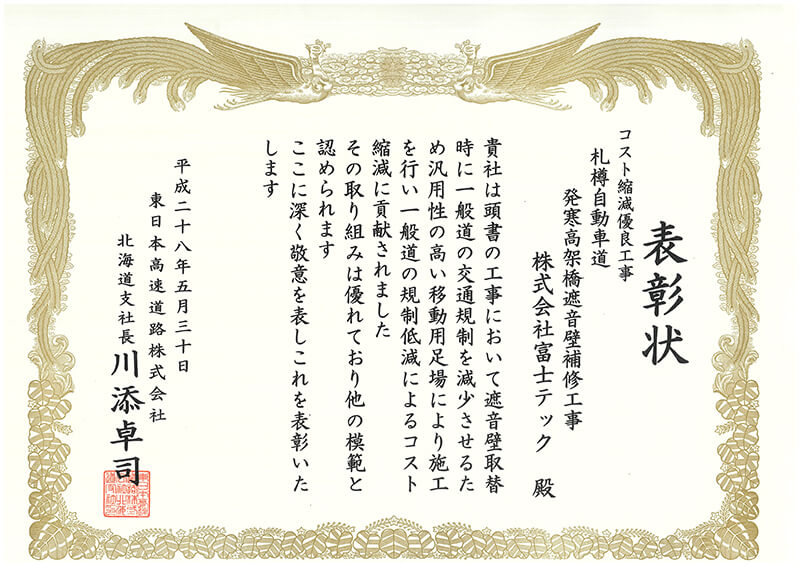 表彰状
コスト縮減優良工事
札樽自動車道
発寒高架橋遮音壁補修工事
株式会社富士テック 殿
貴社は頭書の工事において遮音壁取替
時に一般道の交通規制を減少させるた
め汎用性の高い移動用足場により施工
を行い一般道の規制低減によるコスト
縮減に貢献されました
その取り組みは優れており他の模範と
認められます
ここに深く敬意を表しこれを表彰いた
します
平成二十八年五月三十日
東日本高速道路株式会社
北海道支社長 川添卓司